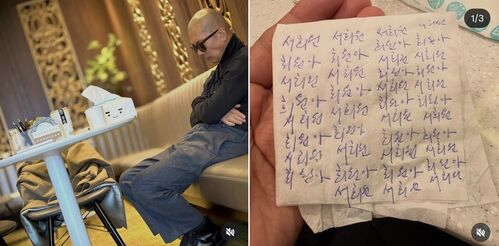 1/3
서희원 서희원 서희원 서희원
희원아 희원아 희원아 희원아
서희원 서희원 서희원 서희원
희원아 희원아 희원아 희원아
서희원 서희원 서희원 서희원
희원아 희원아 희원아 희원아
서희원 서희원 서희원 서희원
희원아 희원아 희원아 희원아
서희원 서희원 서희원